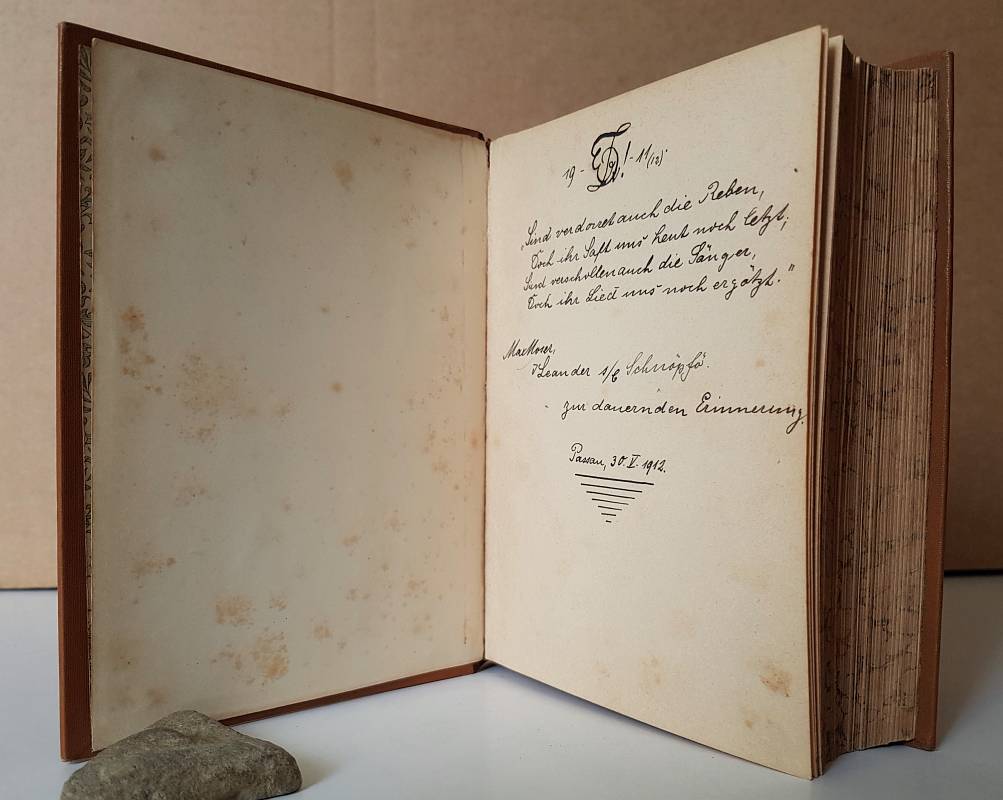 19 - ! - 11 (12)
"Sind verdorret auch die Reben,
Doch ihr Saft uns heut noch letzt;
Sind verschollen auch die Sänger,
Doch ihr Lied uns noch ergötzt."
Max Moser,
Leander s/l Schnöpfö.
zur dauernden Erinnerung.
Passau, 30. V. 1912.